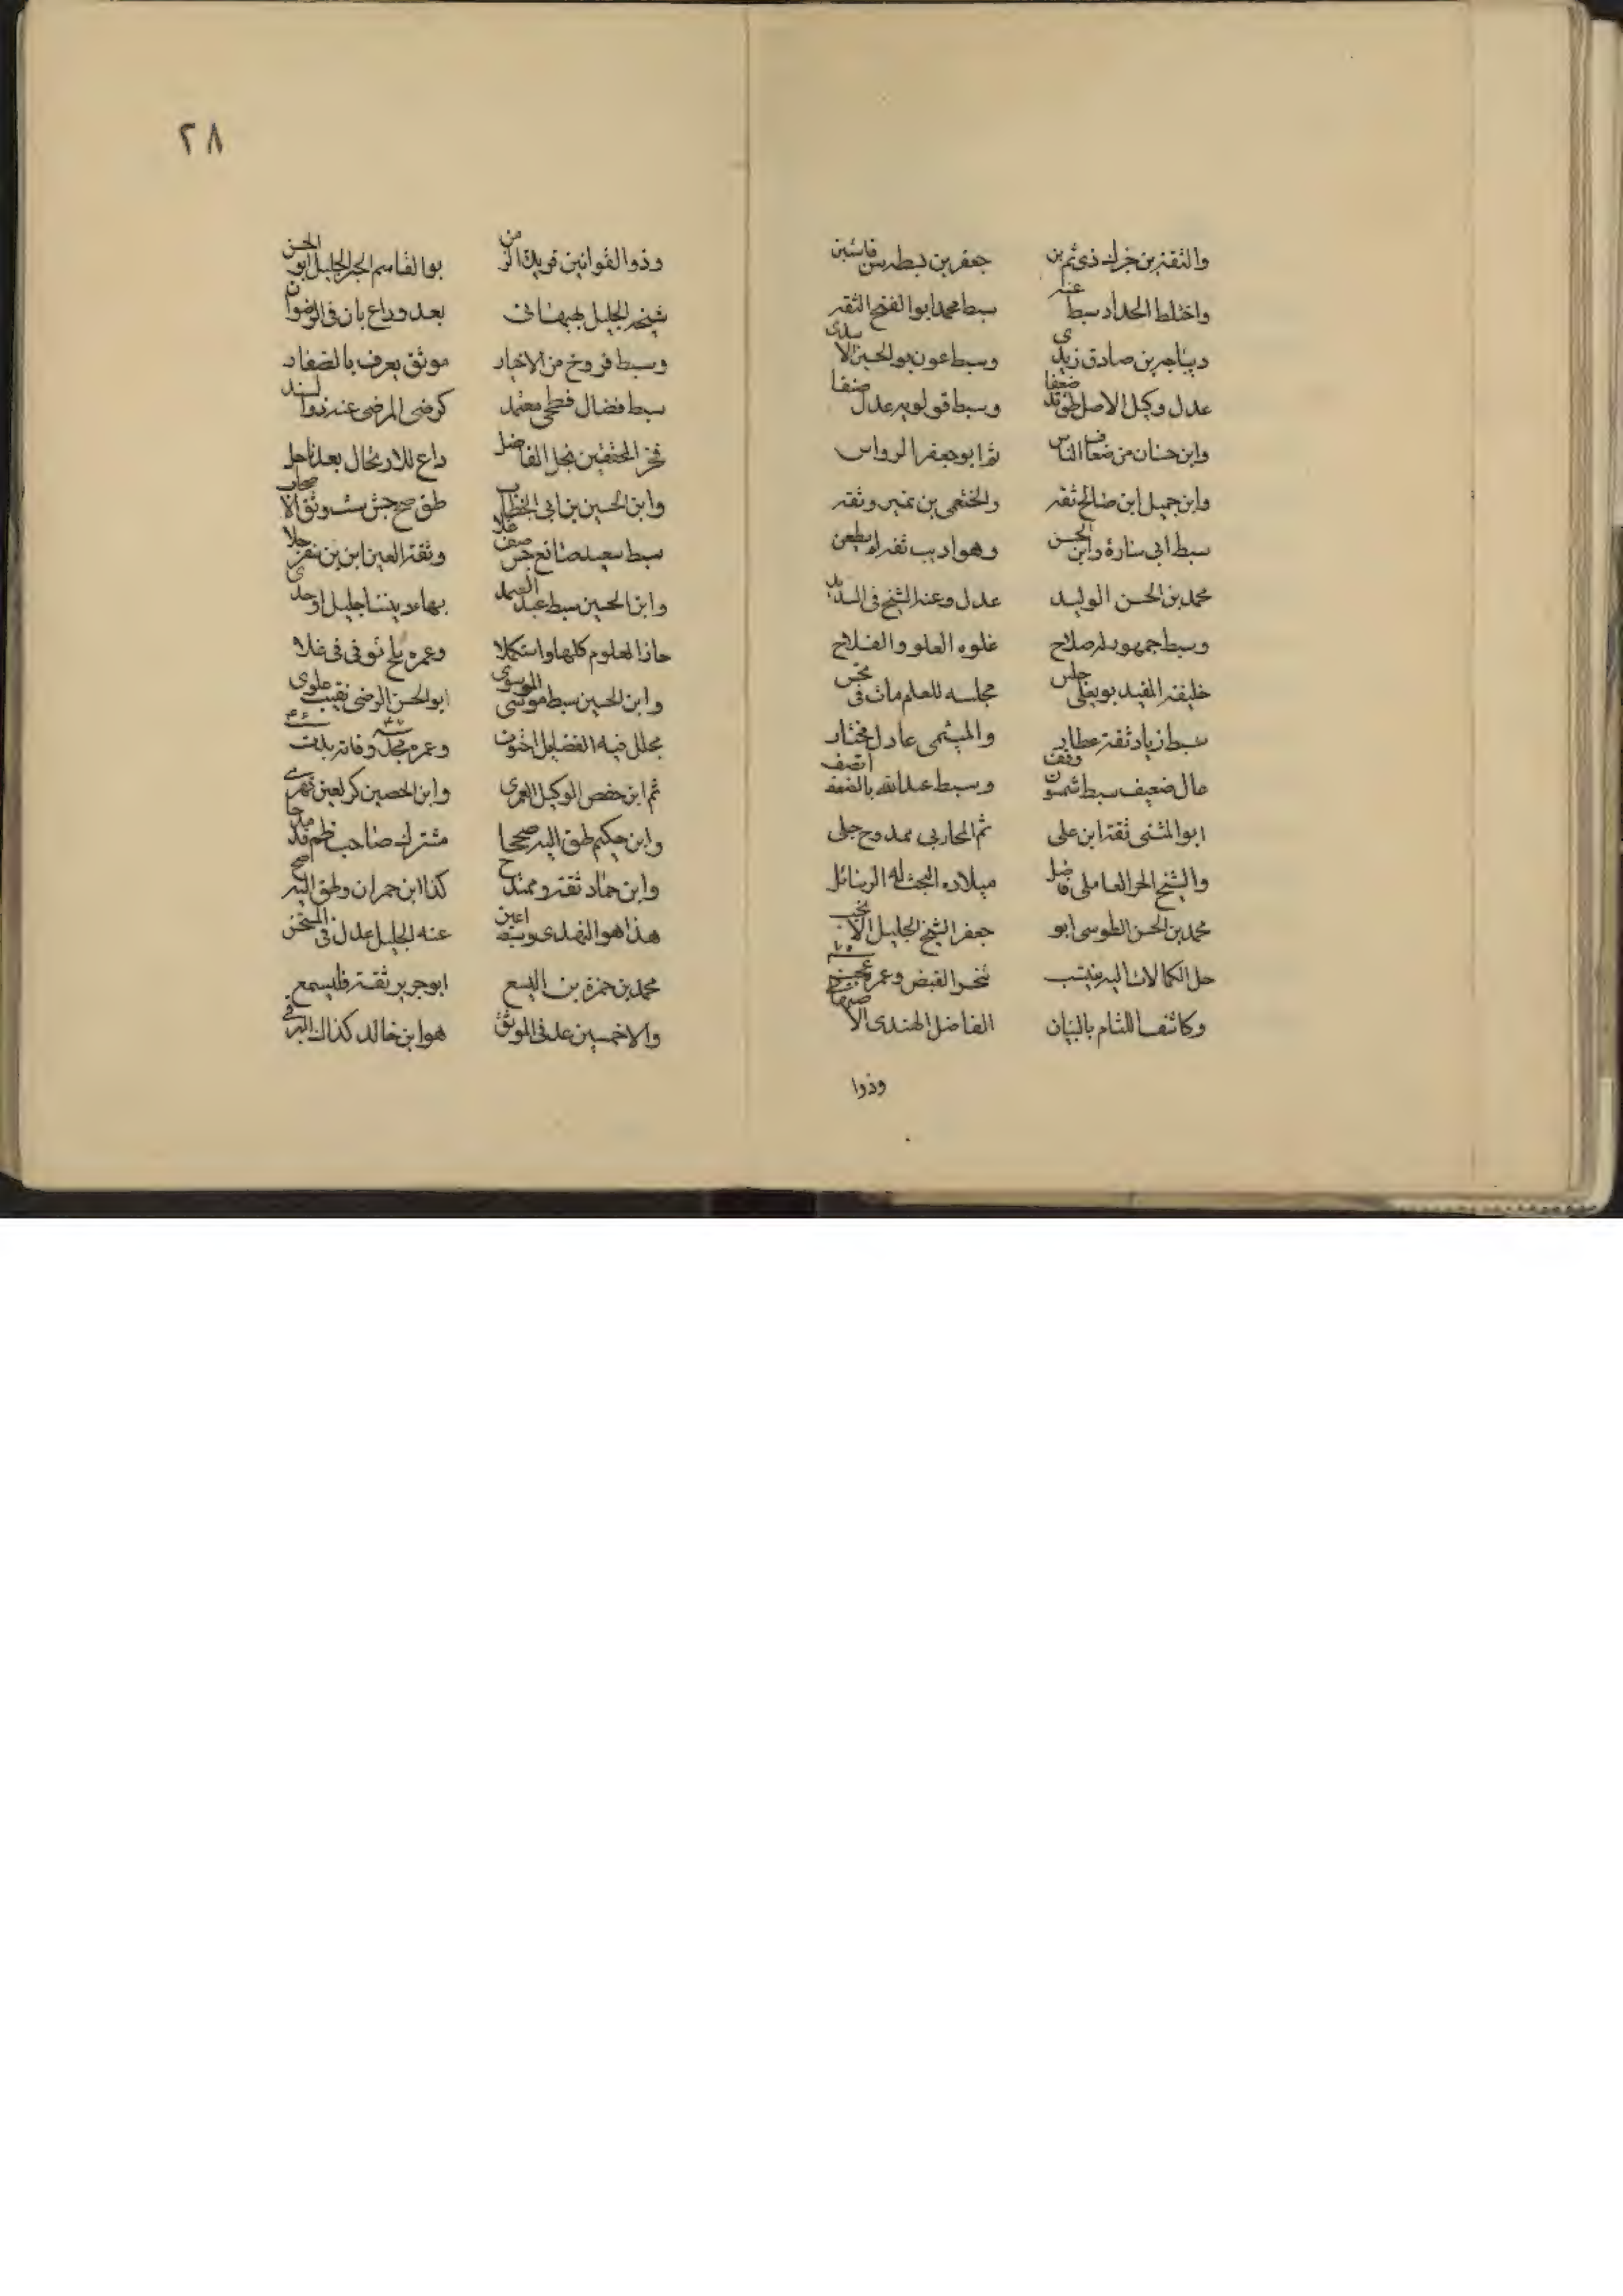 والثقة بن خزك ذى ثم بن جعفر بن بطة بن
واختلط الحداد سبط عنه سبط محمد ابو الفتح الثقه
ديباجه بن صادق زيدى وسبط عون بو الحسين الاسدى
عدل وكيل الاصل طق قد ضعفا وسبط قولويه عدل صنفا
وابن حنان من ضعاف الناس ثم ابو جعفر الرواس
وابن جميل ابن صالح ثقه والخثعمى بن نمير وثقه
سبط ابى سارة وابن الحسن وهو اديب ثقة لم يطعن
محمد بن الحسن الوليد عدل وعنه الشيخ فى
وسبط جمهور له صلاح غلوه العلو والفلاح
خليفه المفيد بو يعلى جلس مجلسه للعلم مات فى
سبط زياد ثقة عطار والميثمى عادل مختار
عال ضعيف سبط شمون وقف وسبط عبدالله بالضعف اتصف
ابو المثنى ثقة ابن على ثم المحاربى ممدوح جلى
والشيخ الحر العاملى فاضل ميلاده البحث له الرسائل
محمد بن الحسن الطوسى ابو جعفر الشيخ الجليل الانجب
جل الكمالات اليه ينتسب تنجز القبض وعمره عجب
وكاشف اللثام بالبيان الفاضل الهندى الاصفهانى
وذوا
٢٨
وذو القوانين فريد الزمن بو القاسم الحبر الجليل ابو الحسن
شيخه الجليل بهبهانى بعد وداع بان فى الرضوان
وسبط فروخ من الاخيار موثق يعرف بالصفار
سبط فضال فطحى معتمد كرضى المرضى عنه ذو السند
فخر المحققين نجل الفاضل داع للارتحال بعد ناحل
وابن الحسين بن ابى الخطاب طق صح جش ست وثق الاصحاب
سبط سعيد صائغ جش ضعف غلا وثقة العين ابن بن سفرجلا
وابن الحسين سبط عبد الصمد بهاء ديننا جليل اوحدى
حاز العلوم كلها واستكملا وعمره ملح توفى فى غلا
وابن الحسين سبط موسى الموسوى ابو الحسن الرضى نقيب علوى
مجلل فيه الفضايل احتوت وعمره مجد وفاته بدت
ثم ابن حفص الوكيل العمرى وابن الحصين كر لعين
وابن حكيم طق اليه صححا مشترك صاحب ظم قد مدحا
وابن حماد ثقة وممتدح كذا ابن حمران وطق اليه صح
هذا هو النهدى وسبط اعين عنه الجليل عدل فى المستحسن
محمد بن حمزة بن اليسع ابو جرير ثقة فليسمع
والاخمسين عد فى الموثق هو ابن خالد كذاك البرقى